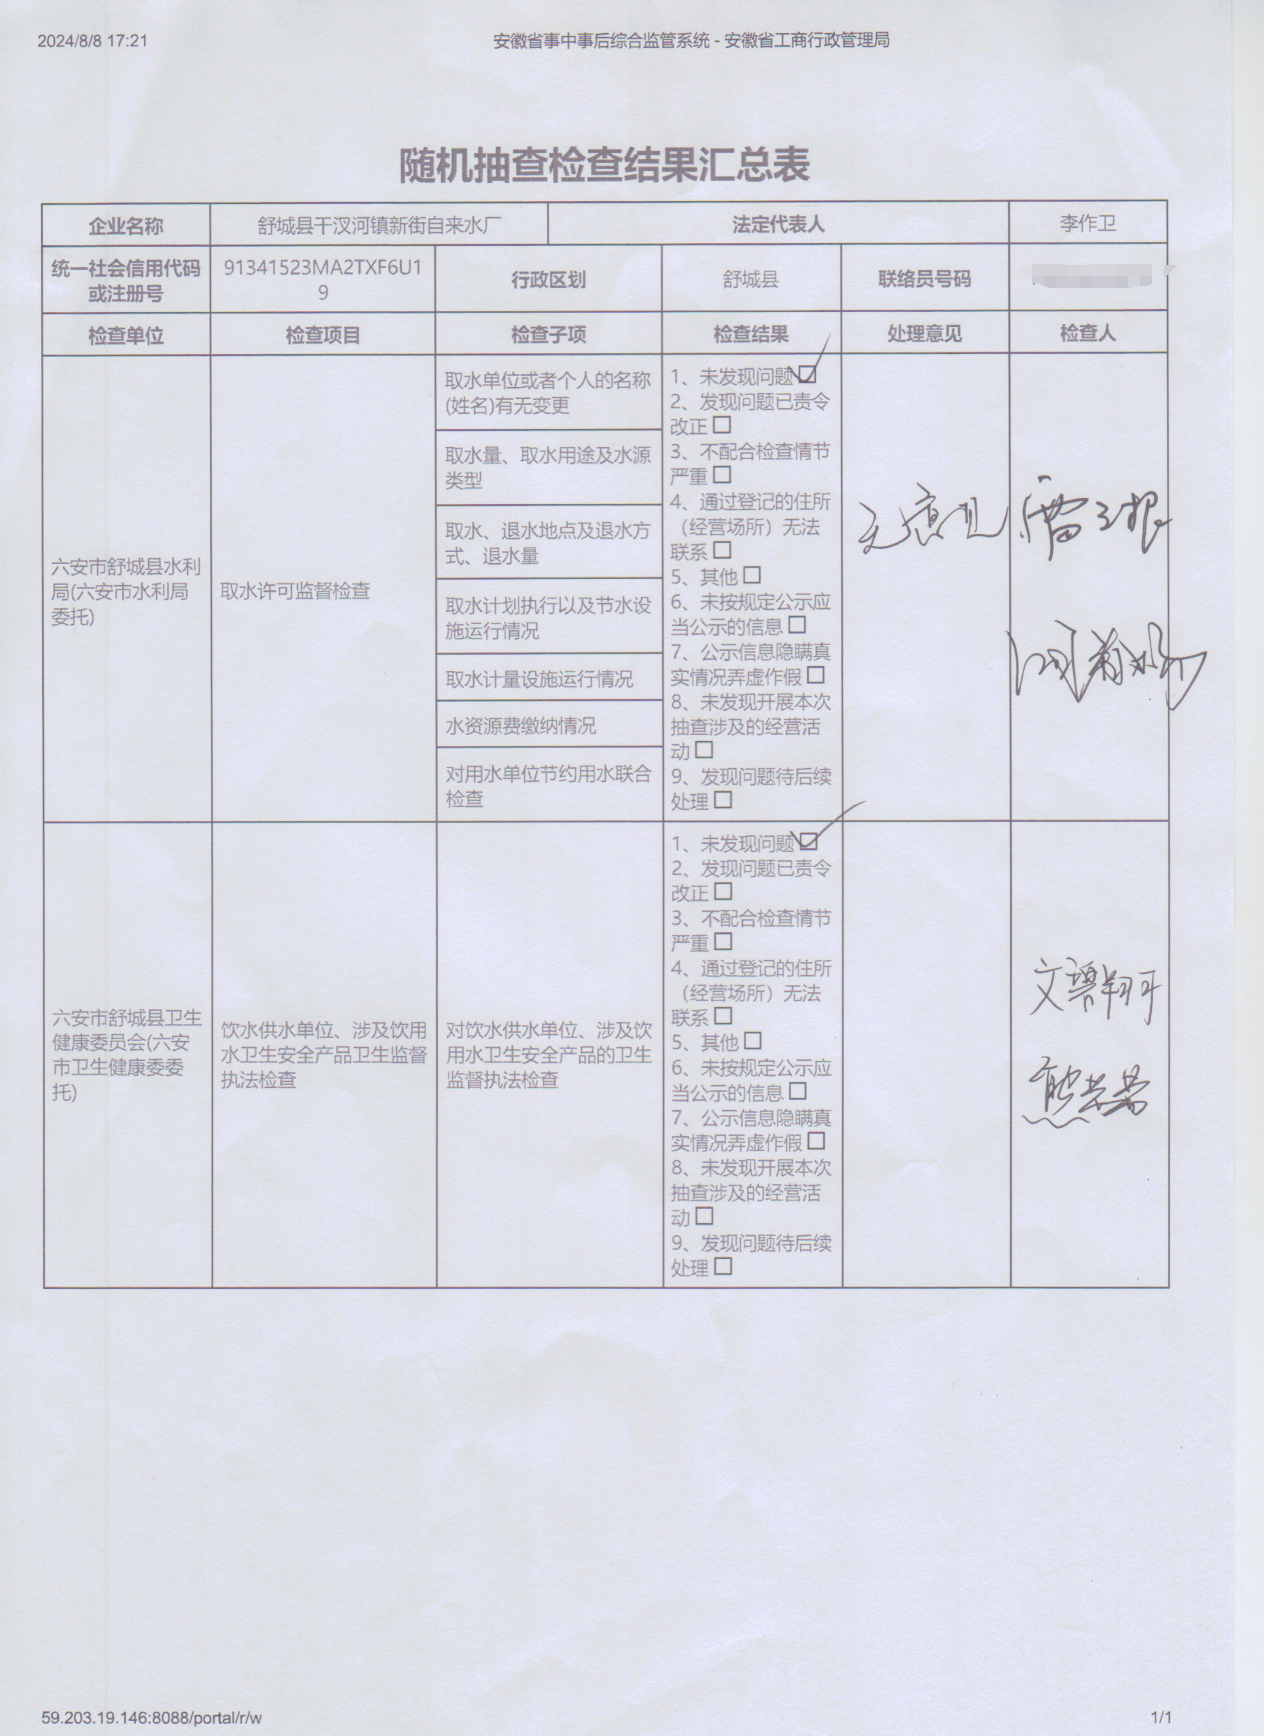 2024/8/8 17:21
安徽省事中事后综合监管系统 - 安徽省工商行政管理局
随机抽查检查结果汇总表
企业名称
舒城县干汊河镇新街自来水厂
法定代表人
李作卫
统一社会信用代码
或注册号
91341523MA2TXF6U1
9
行政区划
舒城县
联络员号码
检查单位
检查项目
检查子项
检查结果
处理意见
检查人
六安市舒城县水利
局(六安市水利局
委托)
取水许可监督检查
取水单位或者个人的名称
(姓名)有无变更
取水量、取水用途及水源
类型
取水、退水地点及退水方
式、退水量
取水计划执行以及节水设
施运行情况
取水计量设施运行情况
水资源费缴纳情况
对用水单位节约用水联合
检查
1、未发现问题☑
2、发现问题已责令
改正☐
3、不配合检查情节
严重☐
4、通过登记的住所
（经营场所）无法
联系☐
5、其他☐
6、未按规定公示应
当公示的信息☐
7、公示信息隐瞒真
实情况弄虚作假☐
8、未发现开展本次
抽查涉及的经营活
动☐
9、发现问题待后续
处理☐
无意见
六安市舒城县卫生
健康委员会(六安
市卫生健康委委
托)
饮水供水单位、涉及饮用
水卫生安全产品卫生监督
执法检查
对饮水供水单位、涉及饮
用水卫生安全产品的卫生
监督执法检查
1、未发现问题☑
2、发现问题已责令
改正☐
3、不配合检查情节
严重☐
4、通过登记的住所
（经营场所）无法
联系☐
5、其他☐
6、未按规定公示应
当公示的信息☐
7、公示信息隐瞒真
实情况弄虚作假☐
8、未发现开展本次
抽查涉及的经营活
动☐
9、发现问题待后续
处理☐
59.203.19.146:8088/portal/r/w
1/1